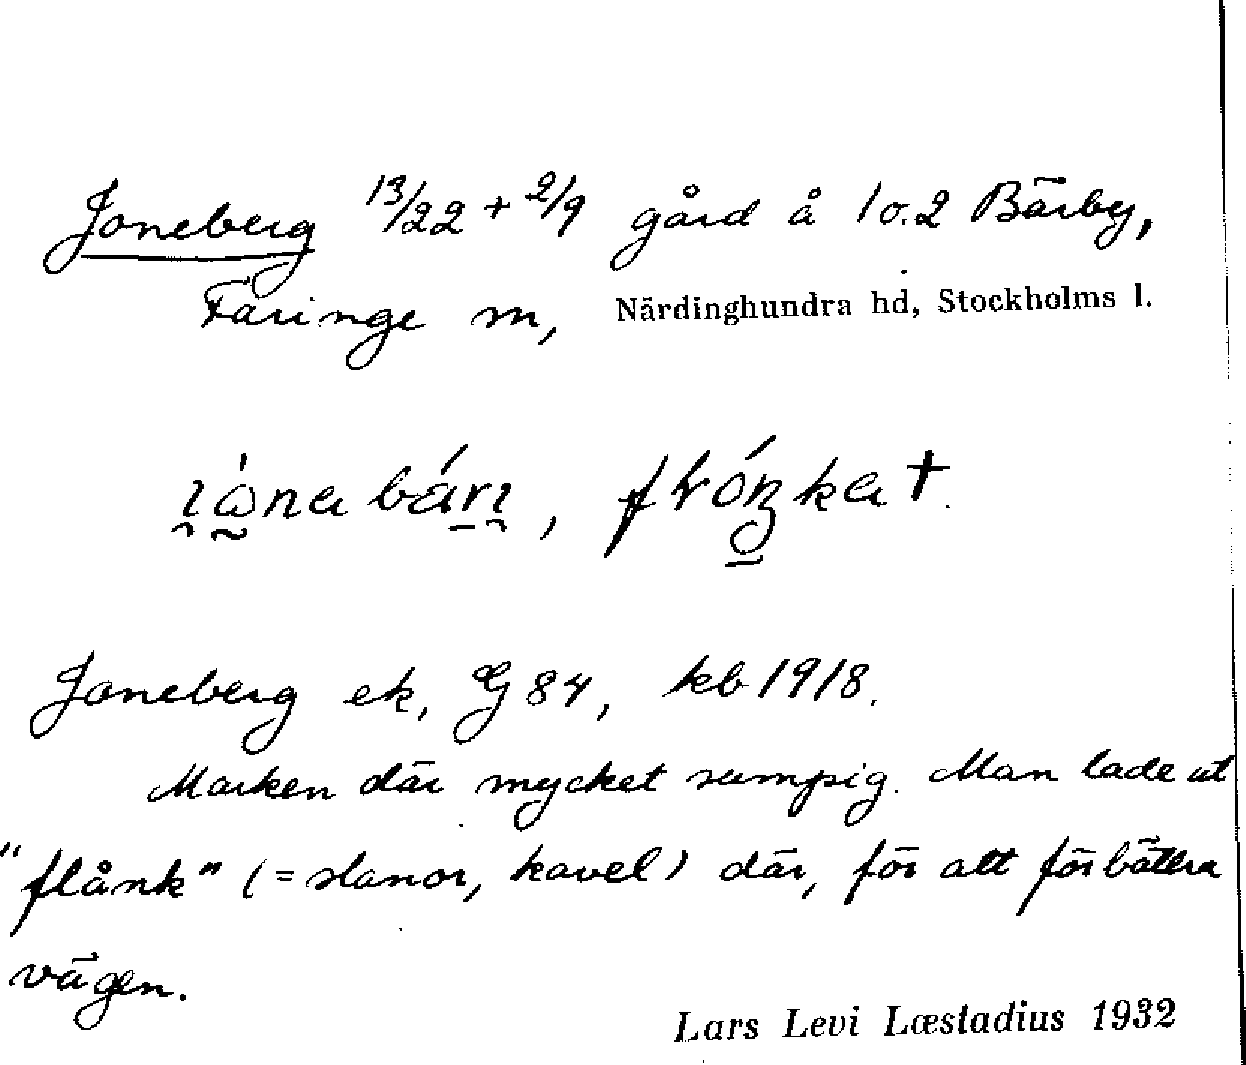 Joneberg 13/22 + 2/9 gård å 1 o. 2 Bärby,
Faringe m, Närdinghundra hd, Stockholms l.
Joneberg ek, G 84, kb 1918.
Marken där mycket sumpig. Man lade ut
"flånk" (= slanor, kavel) där, för att förbättra
vägen.
Lars Levi Læstadius 1932